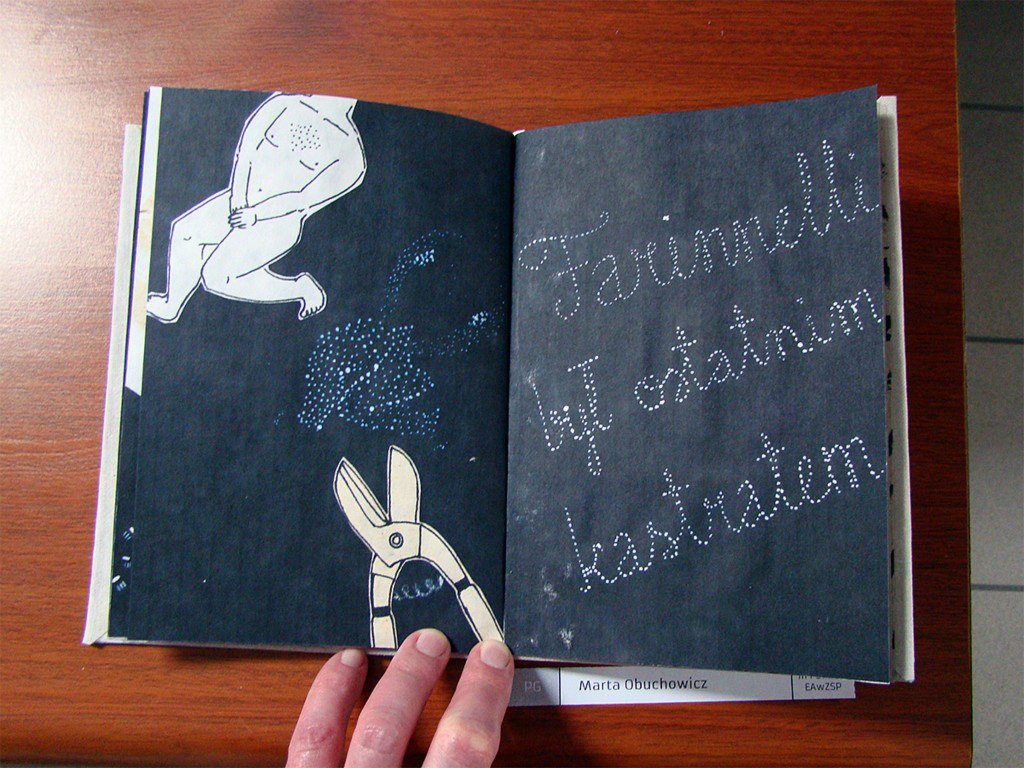 Farinnelli
był ostatnim
kastratem
PG
Marta Obuchowicz
EAwZSP